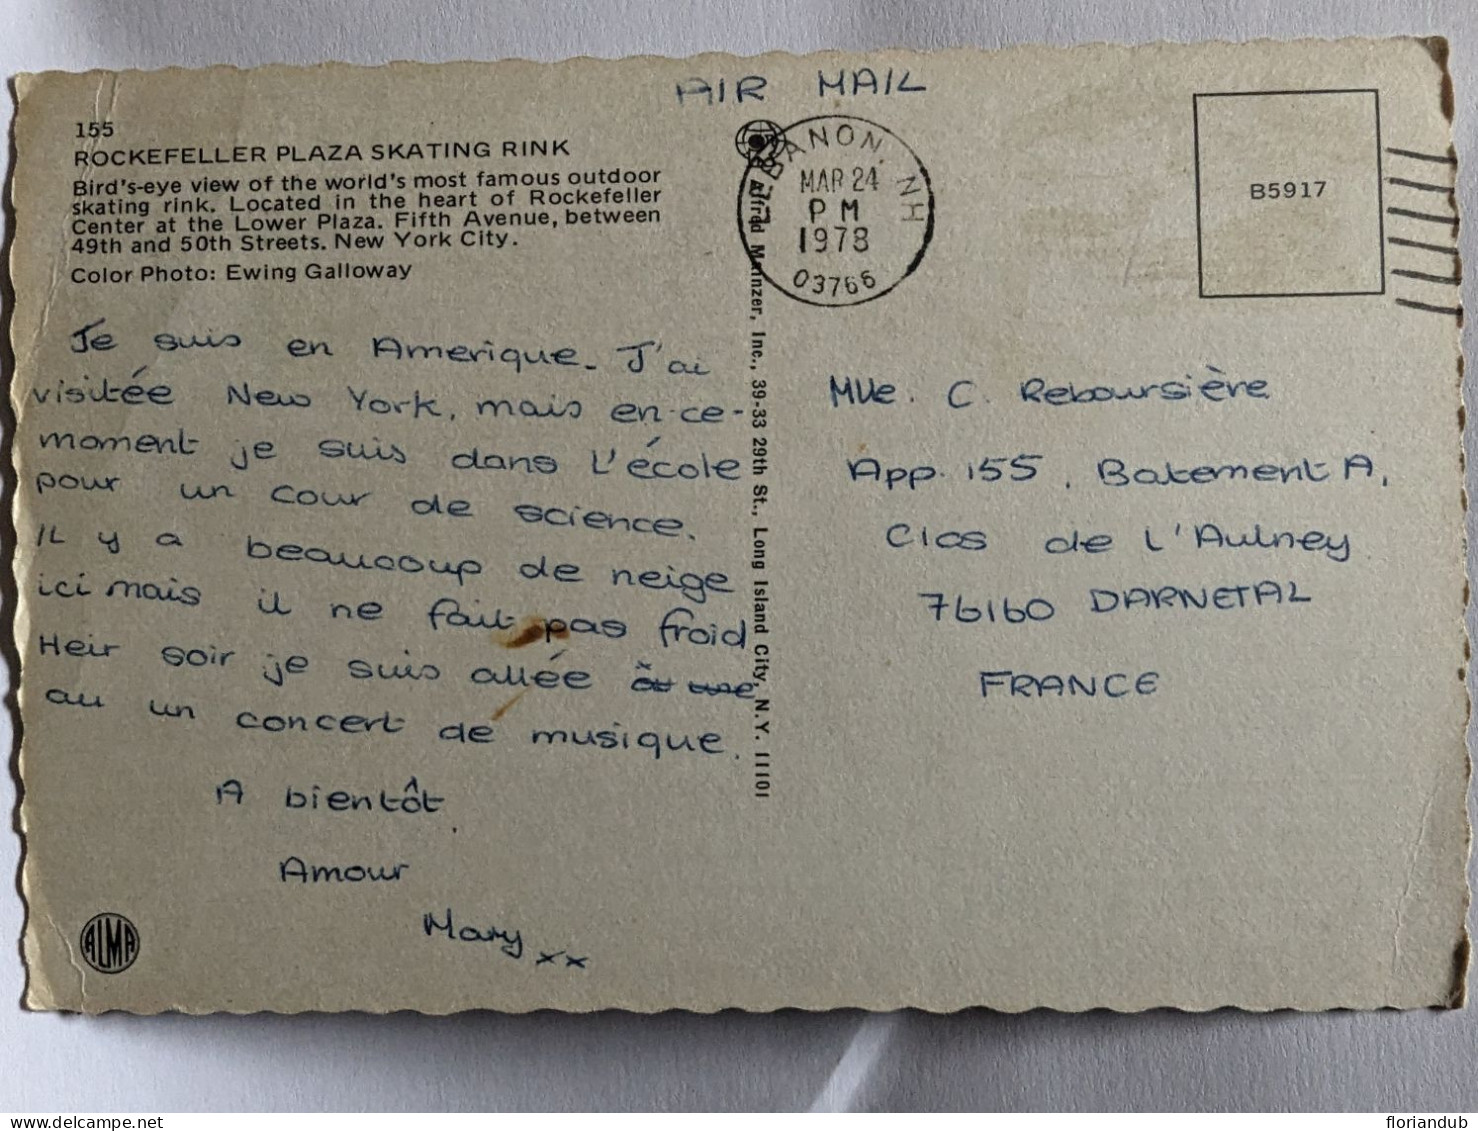 AIR MAIL
155
ROCKEFELLER PLAZA SKATING RINK
Bird's-eye view of the world's most famous outdoor
skating rink. Located in the heart of Rockefeller
Center at the Lower Plaza. Fifth Avenue, between
49th and 50th Streets. New York City.
Color Photo: Ewing Galloway
Je suis en Amerique. J'ai
visitée New York, mais en-ce-
moment je suis dans l'école
pour un cour de science.
Il y a beaucoup de neige
ici mais il ne fait pas froid
Heir soir je suis allée
au un concert de musique.
A bientôt
Amour
Mary xx
ALMA
Alfred Mainzer, Inc., 39-33 29th St., Long Island City, N.Y. 11101
LEBANON, NH
MAR 24
PM
1978
03766
B5917
Mlle. C. Reboursière
App. 155, Batement A,
Clos de l'Aulney
76160 DARNETAL
FRANCE
floriandub